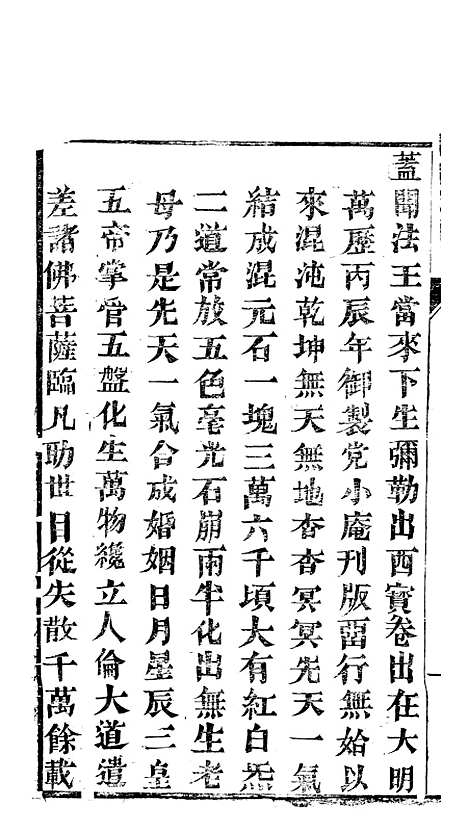 蓋聞法王當來下生彌勒出西寶卷出在大明
萬歷丙辰年御製党小庵刊版畱行無始以
來混沌乾坤無天無地杳杳冥冥先天一氣
結成混元石一塊三萬六千頃大有紅白炁
二道常放五色毫光石崩兩半化出無生老
母乃是先天一氣合成婚姻日月星辰三皇
五帝掌管五盤化生萬物纔立人倫大道遣
差諸佛菩薩臨凡助世自從失散千萬餘載